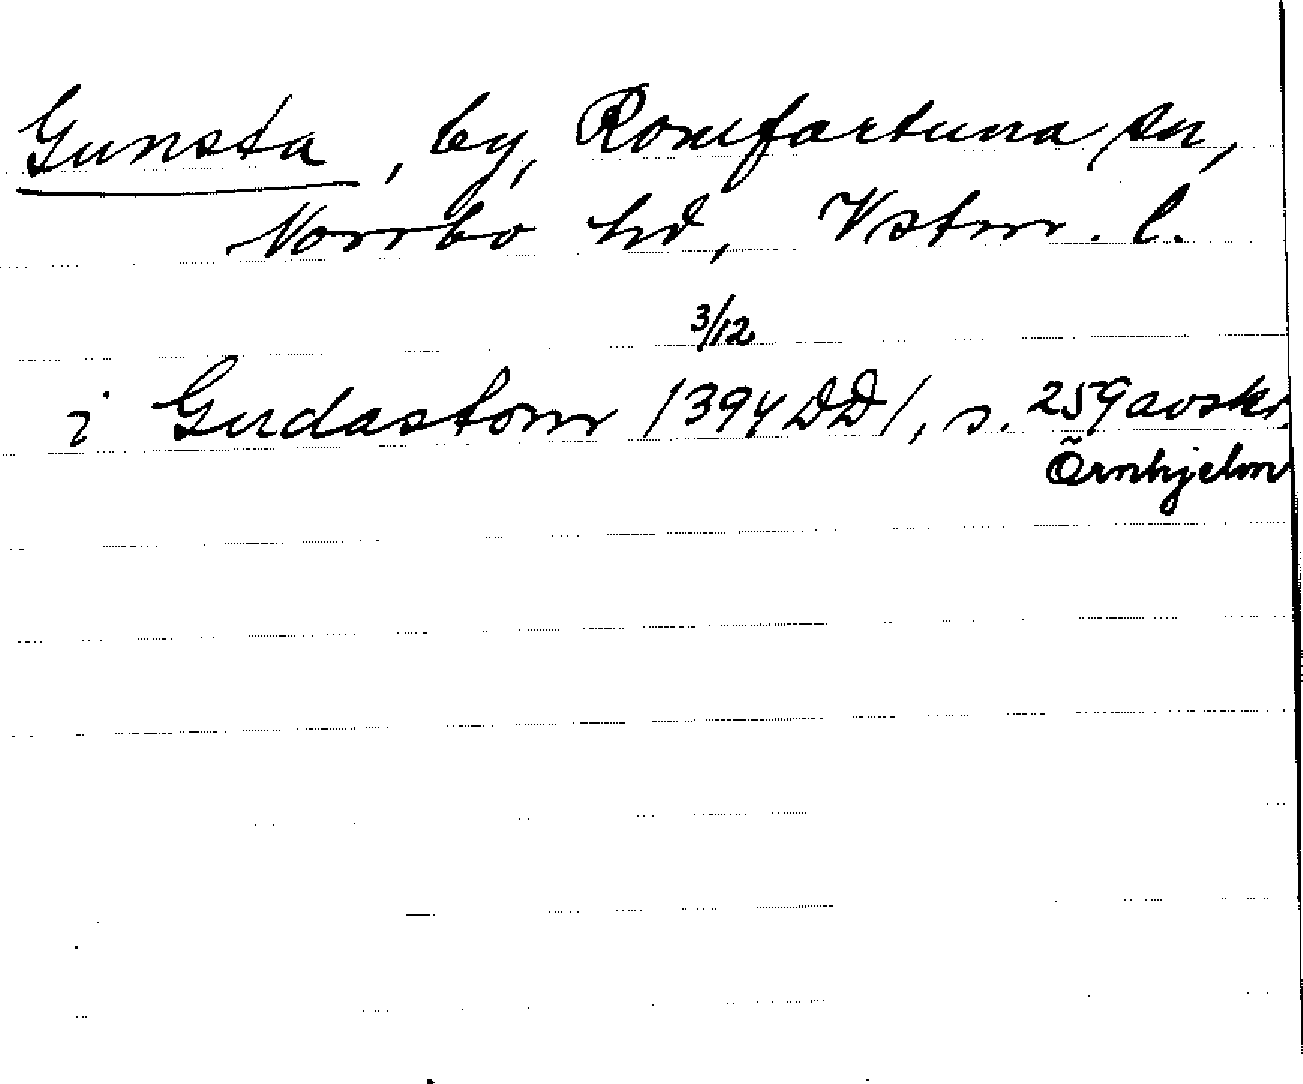 Gunsta, by, Romfartuna sn,
Norrbo hd, Vstm. l.
3/12
i Gudastom /1394 DD/, s. 259 avskr.
Örnhjelm